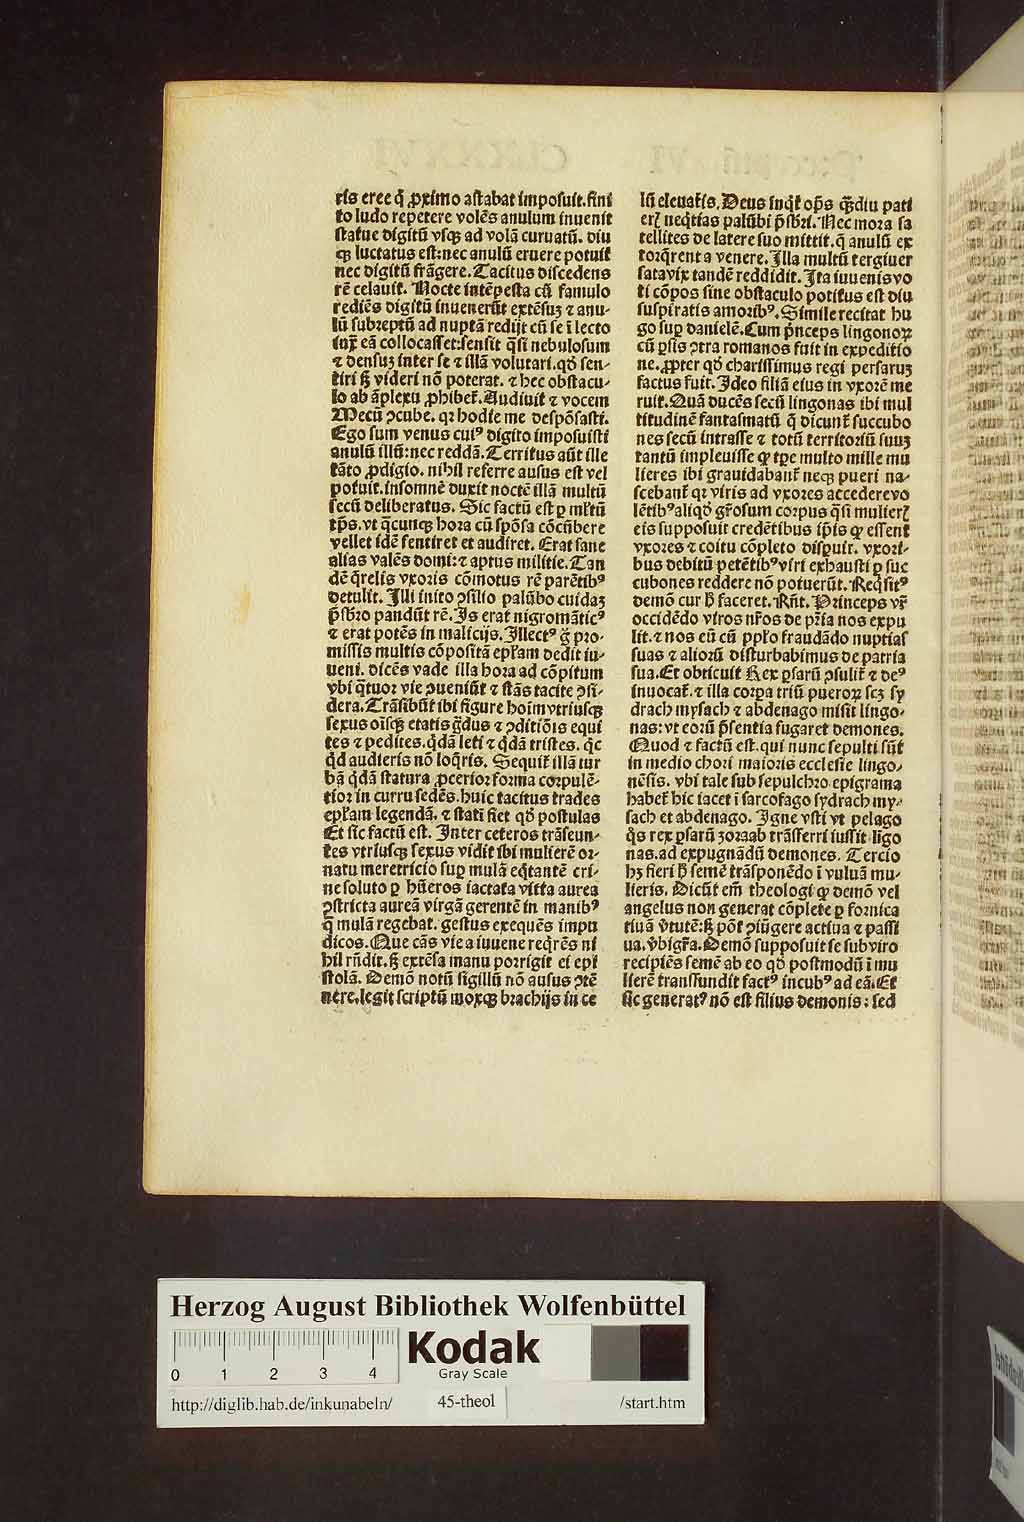 ris eree q̃ ꝓximo astabat imposuit. fini
to ludo repetere volẽs anulum inuenit
statue digitũ vsqꝫ ad volã curuatũ. diu
qꝫ luctatus est: nec anulũ eruere potuit
nec digitũ frãgere. Tacitus discedens
rẽ celauit. Nocte intẽpesta cũ famulo
rediẽs digitũ inuenerũt extẽsuꝫ ⁊ anu-
lũ subreptũ ad nuptã redijt cũ se ĩ lecto
iux̃ eã collocasset: sensit q̃si nebulosum
⁊ densuꝫ inter se ⁊ illã volutari. qđ sen-
tiri sꝫ videri nõ poterat. ⁊ hec obstacu-
lo ab ãplexu ꝓhibet᷑. Audiuit ⁊ vocem
Mecũ ꝯcube. qꝛ hodie me despõsasti.
Ego sum venus cuiꝰ digito imposuisti
anulũ illũ: nec reddã. Territus aũt ille
tãto ꝓdigio. nihil referre ausus est vel
potuit. insomnẽ duxit noctẽ illã multũ
secũ deliberatus. Sic factũ est ꝑ ml̃tũ
tp̃s. vt q̃cunqꝫ hora cũ spõsa cõcũbere
vellet idẽ sentiret et audiret. Erat sane
alias valẽs domi: ⁊ aptus militie. Tan
dẽ q̃relis vxoris cõmotus rẽ parẽtibꝰ
detulit. Illi inito ꝯsilio palũbo cuidaꝫ
p̃sb̃ro pandũt rẽ. Is erat nigromãticꝰ
⁊ erat potẽs in malicijs. Illectꝰ g̃ pro-
missis multis cõpositã epl̃am dedit iu-
ueni. dicẽs vade illa hora ad cõpitum
vbi q̃tuor vie ꝯueniũt ⁊ stãs tacite ꝯsi-
dera. Trãsibũt ibi figure hoĩm vtriusqꝫ
sexus oĩsqꝫ etatis g̃dus ⁊ ꝯditiõis equi
tes ⁊ pedites. q̃dã leti ⁊ q̃dã tristes. q̃c
q̃d audieris nõ loq̃ris. Sequit᷑ illã tur
bã q̃dã statura ꝓcerior forma corpulẽ-
tior in curru sedẽs. huic tacitus trades
epl̃am legendã. ⁊ statĩ fiet qđ postulas
Et sic factũ est. Inter ceteros trãseun-
tes vtriusqꝫ sexus vidit ibi mulierẽ or-
natu meretricio suꝑ mulã eq̃tantẽ cri-
ne soluto ꝑ hũeros iactata vitta aurea
ꝯstricta aureã virgã gerentẽ in manibꝰ
q̃ mulã regebat. gestus exequẽs impu
dicos. Que cãs vie a iuuene req̃rẽs ni
hil rñdit. sꝫ extẽsa manu porrigit ei epi
stolã. Demõ notũ sigillũ nõ ausus ꝯtẽ
nere. legit scriptũ moxqꝫ brachijs in ce
lũ eleuatis. Deus inq̃t op̃s q̃diu pati
erꝭ neq̃tias palũbi p̃sb̃ri. Nec mora sa
tellites de latere suo mittit. q̃ anulũ ex
torq̃rent a venere. Illa multũ tergiuer
sata vix tandẽ reddidit. Ita iuuenis vo
ti cõpos sine obstaculo potitus est diu
suspiratis amoribꝰ. Simile recitat hu
go suꝑ danielẽ. Cum p̃nceps lingonoꝝ
cũ ꝑsis ꝯtra romanos fuit in expeditio
ne. ꝓpter qđ charissimus regi persaruꝫ
factus fuit. Ideo filiã eius in vxorẽ me
ruit. Quã ducẽs secũ lingonas ibi mul
titudinẽ fantasmatũ q̃ dicunt᷑ succubo
nes secũ intrasse ⁊ totũ territoriũ suuꝫ
tantũ impleuisse ꝙ tp̃e multo mille mu
lieres ibi grauidabant᷑ neqꝫ pueri na-
scebant᷑ qꝛ viris ad vxores accedere vo
lẽtibꝰ aliqđ gr̃osum corpus q̃si mulierꝭ
eis supposuit credẽtibus ip̃is ꝙ essent
vxores ⁊ coitu cõpleto disparuit. vxori-
bus debitũ petẽtibꝰ viri exhausti ꝑ suc
cubones reddere nõ potuerũt. Req̃sitꝰ
demõ cur h̃ faceret. Rñt. Princeps vr̃
occidẽdo viros nr̃os de pr̃ia nos expu
lit. ⁊ nos eũ cũ pp̃lo fraudãdo nuptias
suas ⁊ aliorũ disturbabimus de patria
sua. Et obticuit Rex ꝑsarũ ꝯsulit᷑ ⁊ deꝰ
inuocat᷑. ⁊ illa corpa triũ pueroꝝ scꝫ sy
drach mysach ⁊ abdenago misit lingo-
nas: vt eorũ p̃sentia fugaret demones.
Quod ⁊ factũ est. qui nunc sepulti sũt
in medio chori maioris ecclesie lingo-
nẽsis. vbi tale sub sepulchro epigrama
habet᷑ hic iacet ĩ sarcofago sydrach my-
sach et abdenago. Igne vsti vt pelago
q̃s rex ꝑsarũ zoraab trãsferri iussit ligo
nas. ad expugnãdũ demones. Tercio
hꝫ fieri h̃ semẽ trãsponẽdo ĩ vuluã mu-
lieris. Dicũt em̃ theologi ꝙ demõ vel
angelus non generat cõplete ꝑ fornica
tiuã v̓tutẽ: sꝫ põt᷑ ꝯiũgere actiua ⁊ passi
ua. v̓bigr̃a. Demõ supposuit se sub viro
recipiẽs semẽ ab eo qđ postmodũ ĩ mu
lierẽ transfundit factꝰ incubꝰ ad eã. Et
sic generatꝰ nõ est filius demonis: sed
Herzog August Bibliothek Wolfenbüttel
0 1 2 3 4
Kodak
Gray Scale
http://diglib.hab.de/inkunabeln/ 45-theol /start.htm